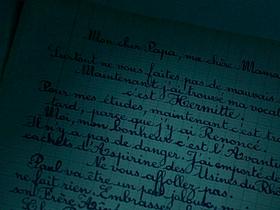 Mon cher Papa, ma chère Mam
Surtout ne vous faites pas de mauvais
Maintenant j'ai trouvé ma vocat
c'est Hermitte!
Pour mes études, maintenant c'est tro
tard, parce que j'y ai Renoncé.
Moi, mon bonheur c'est l'Avant
Il n'y a pas de danger. J'ai emporté de
cachets d'Aspirine des Usines du Rh
Ne vous affollez pas.
Paul va être un peu jaloux, m
ne fait rien. Embrassez
son Frère